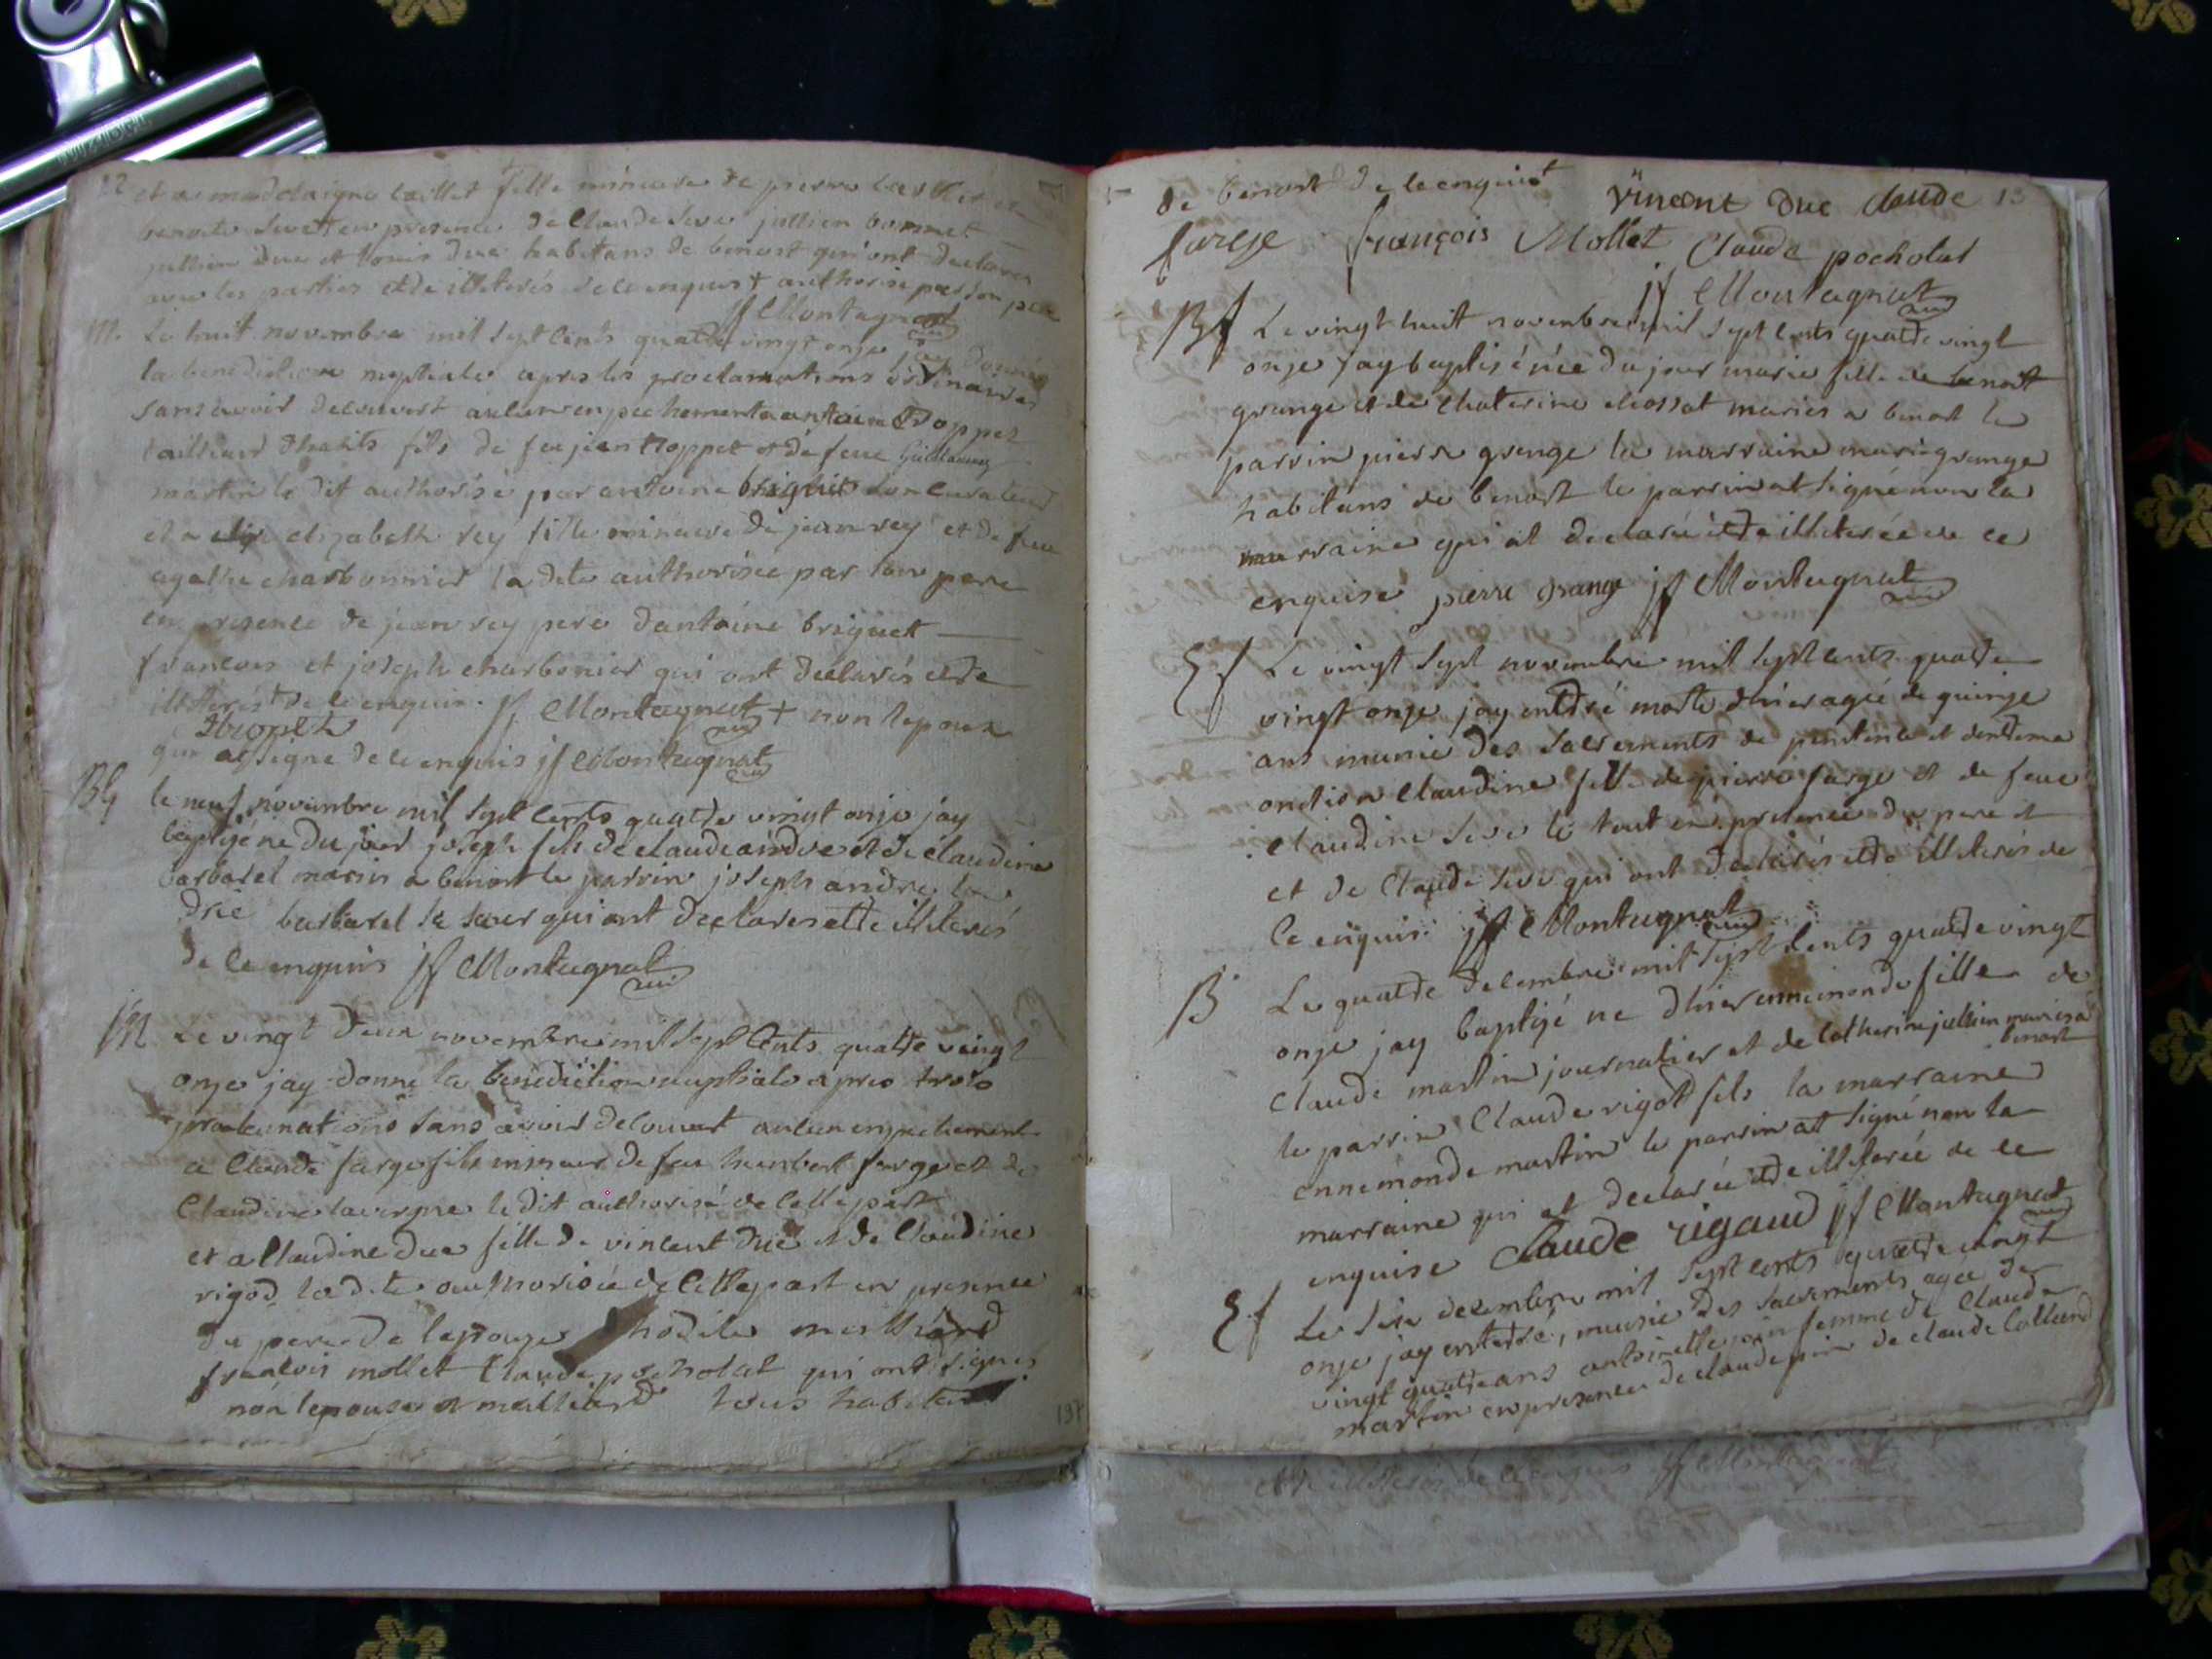 22 et a madelaigne caillet fille mineure de pierre caillet et
benoite seve en presence de Claude Seve jullien bonnet
jullien Duc et Louis Duc habitans de benost qui ont declares
avec les parties etre illiterés de ce enquis + authorisé par son pere
jf Montagnat
M. Le huit novembre mil sept cents quatre vingt onze j'ay donné
la benediction nuptiale apres les proclamations ordinaires
sans avoir decouvert aucun enpechement a antoine Troppet
tailleur d'habits fils de feu jean troppet et de feue Guillauma
martin le dit authorisé par antoine briguet son curateur
et a elizabeth rey fille mineure de jean rey et de feue
agathe charbonnier la dite authorisée par son pere
en presence de jean rey pere d'antoine briguet
francois et joseph charbonier qui ont declarés etre
illiterés de ce enquis. jf Montagnat + non lepoux
thropet
qui a signe de ce enquis jf Montagnat
Bg le neuf novembre mil sept cents quatre vingt onze jay
baptizé né du jour joseph fils de claude andre et de claudine
barbaret mariés a benost le parrin joseph andre la
drie barbaret sa soeur qui ont declares etre illiterés
de ce enquis jf Montagnat
M Le vingt deux novembre mil sept Cents quatre vingt
onze jay donné la benediction nuptiale apres trois
proclamations sans avoir decouvert aucun enpechement
a Claude farge fils mineur de feu humbert farge et de
Claudine lavergne le dit authorisé de cette part
et a Claudine duc fille de vincent duc et de Claudine
rigod la dite authorisée de cette part en presence
du pere de l'epouse hodile milliard
francois mollet Claude pocholat qui ont signés
non lepouse et milliard tous habitans
197
de benost de ce enquis Vincent Duc claude 13
farge françois Mollet Claude pocholat
jf Montagnat
Bf Le vingt huit novembre mil sept cents quatre vingt
onze jay baptisé née du jour marie fille de benoit
grange et de Chaterine chossat maries a benost le
parrin pierre grange la marraine marie grange
habitans de benost le parrin at signé non la
marraine qui at declarée etre illiterée de ce
enquise pierre grange jf Montagnat
Sf Le vingt sept novembre mil sept cents quatre
vingt onze jay entérré morte d'hier agée de quinze
ans munie des sacrements de penitence et d'extreme
onction Claudine fille de pierre farge et de feue
Claudine seve le tout en presence du pere et
et de Claude seve qui ont declarés etre illiterés de
ce enquis jf Montagnat
B Le quatre decembre mil sept cents quatre vingt
onze jay baptizé ne d'hier ennemonde fille de
claude martin journalier et de catherine jullien maries a
benost
le parrin Claude rigod fils la marraine
ennemonde martin le parrin at signé non la
marraine qui at declarée etre illiterée de ce
enquise claude rigaud jf Montagnat
Sf Le six decembre mil sept cents quatre vingt
onze jay enterré, munie des sacrements agée de
vingt quatre ans antoinette pin femme de Claude
martin en presence de claude pin de claude Colland
etre illiterés de ce enquis jf Montagnat